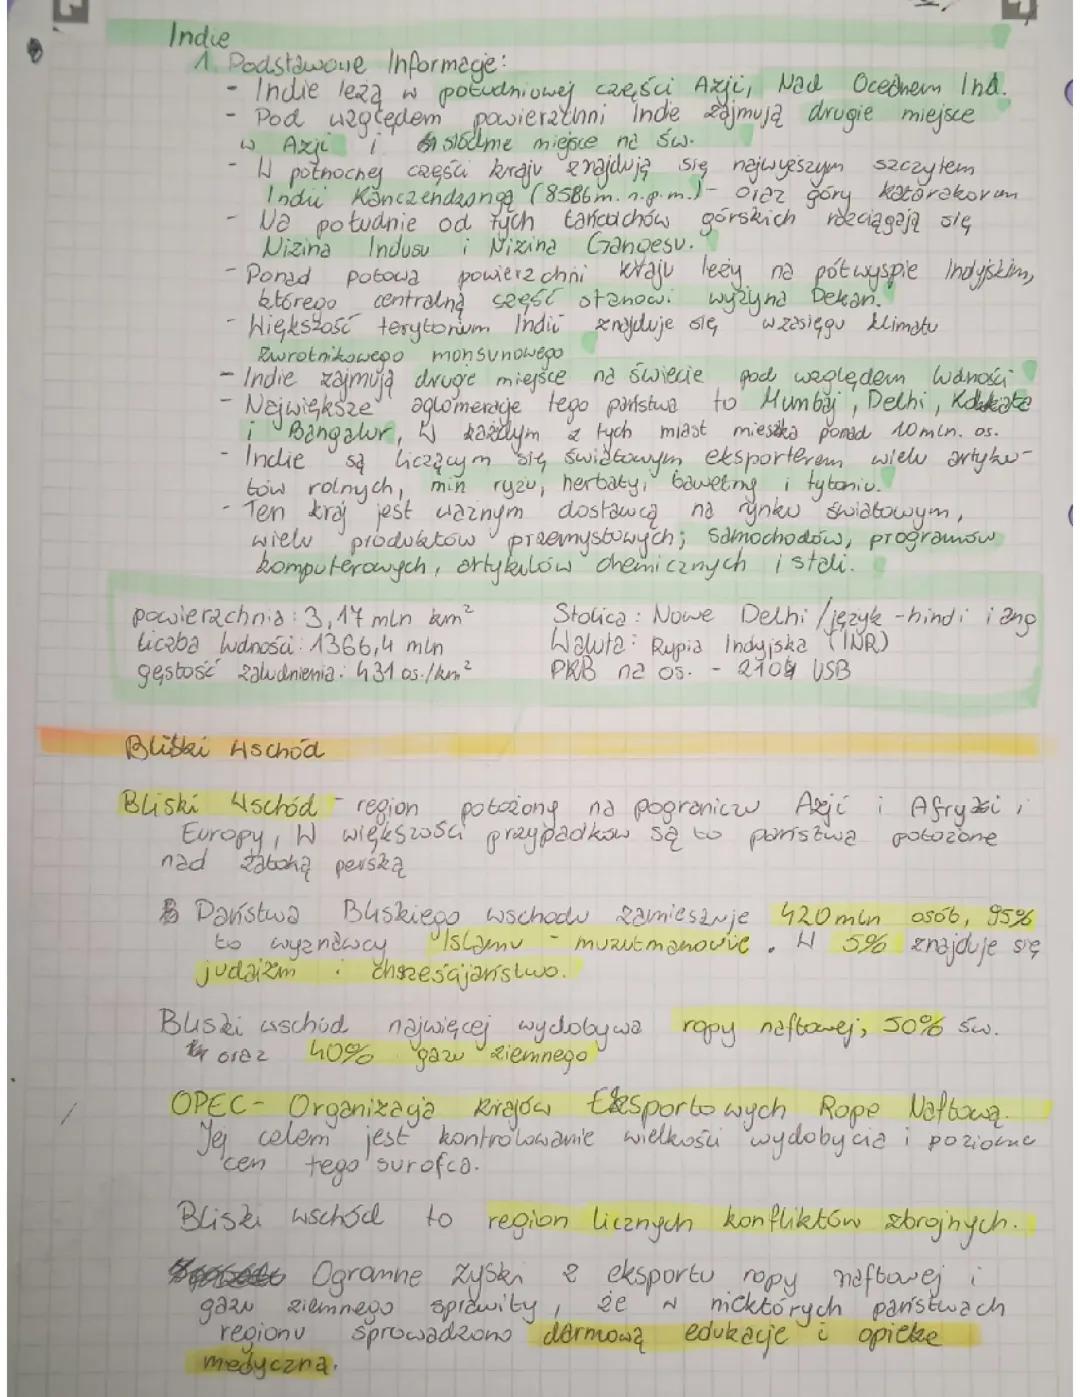 Indie
1. Podstawowe Informacje:
- Indie leżą w południowej części Azji, Nad Oceanem Ind.
- Pod względem powierzchni Indie zajmują drugie miejsce
w Azji i siódme miejsce na św.
- W północnej części kraju znajdują się najwyższym szczytem
Indii Kanczendzongą (8586m. n.p.m.) - oraz góry Karakorum
- Na południe od tych łańcuchów górskich rozciągają się
Nizina Indusu i Nizina Gangesu.
- Ponad połowa powierzchni kraju leży na półwyspie Indyjskim,
którego centralną część stanowi wyżyna Dekan.
- Większość terytorium Indii znajduje się w zasięgu klimatu
zwrotnikowego monsunowego
- Indie zajmują drugie miejsce na świecie pod względem ludności
- Największe aglomeracje tego państwa to Mumbaj, Delhi, Kalkata
i Bangalur, W każdym z tych miast mieszka ponad 10mln. os.
- Indie są liczącym się światowym eksporterem wielu artyku-
łów rolnych, min ryżu, herbaty, bawełny i tytoniu.
- Ten kraj jest ważnym dostawcą na rynku światowym,
wielu produktów przemysłowych; samochodów, programów
komputerowych, artykułów chemicznych i stali.
powierzchnia: 3,17 mln km² Stolica: Nowe Delhi / język - hindi i ang
liczba ludności: 1366,4 mln Waluta: Rupia Indyjska (INR)
gęstość zaludnienia: 431 os./km² PKB na os. - 2104 USB
Bliski Wschód
Bliski Wschód - region położony na pograniczu Azji i Afryki i
Europy, W większości przypadków są to państwa położone
nad zatoką perską
Państwa Bliskiego wschodu zamieszuje 420 mln osób, 95%
to wyznawcy Islamu - muzułmanowie. W 5% znajduje się
judaizm i chrześcijaństwo.
Bliski wschód najwięcej wydobywa ropy naftowej, 50% św.
oraz 40% gazu ziemnego
OPEC - Organizacja Krajów Eksportowych Ropę Naftową.
Jej celem jest kontrolowanie wielkości wydobycia i poziomu
cen tego surofca.
Bliski wschód to region licznych konfliktów zbrojnych.
Ogromne zyski z eksportu ropy naftowej i
gazu ziemnego sprawiły, że w niektórych państwach
regionu sprowadzono darmową edukacje i opiekę
medyczną.